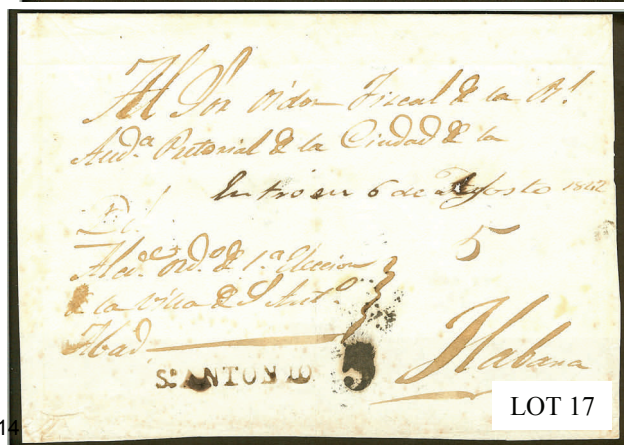 Al Sor Oidor Fiscal de la Rl.
Auda. Pretorial de la Ciudad de la
Entro en 6 de Agosto 1842
Del
5
Alcde. Ordo. de 1.a Eleccion
de la Villa de S. Anto.
Abad
Habana
So. ANTONIO 5
LOT 17
14